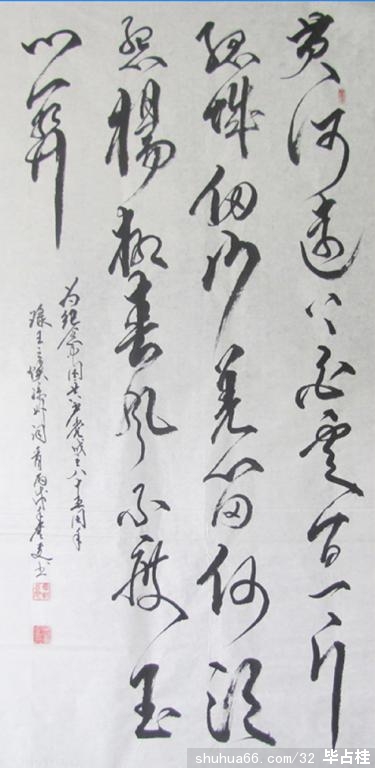 黄河远上白云间一片
孤城仞山羌笛何须
怨杨柳春风不度玉
门关
为纪念中国共产党成立八十五周年
录王之涣凉州词 丙戌 书
shuhua66.com/32 毕占桂